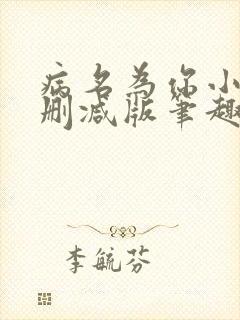 病名为你小
删减版笔趣
李毓芬